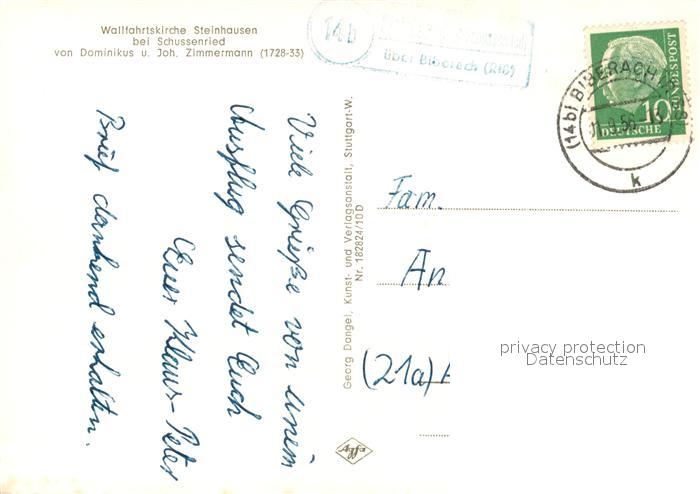 Wallfahrtskirche Steinhausen
bei Schussenried
von Dominikus u. Joh. Zimmermann (1728-33)
14b
über Biberach (Riß)
DEUTSCHE
BUNDESPOST
10
(14b) BIBERACH
k
Viele Grüße von unserm
Ausflug sendet Euch
Euer Klaus-Peter
Brief dankend erhalten.
Georg Dangel, Kunst- und Verlagsanstalt, Stuttgart-W.
Nr. 182824/10 D
Agfa
Fam.
An
(21a)
privacy protection
Datenschutz